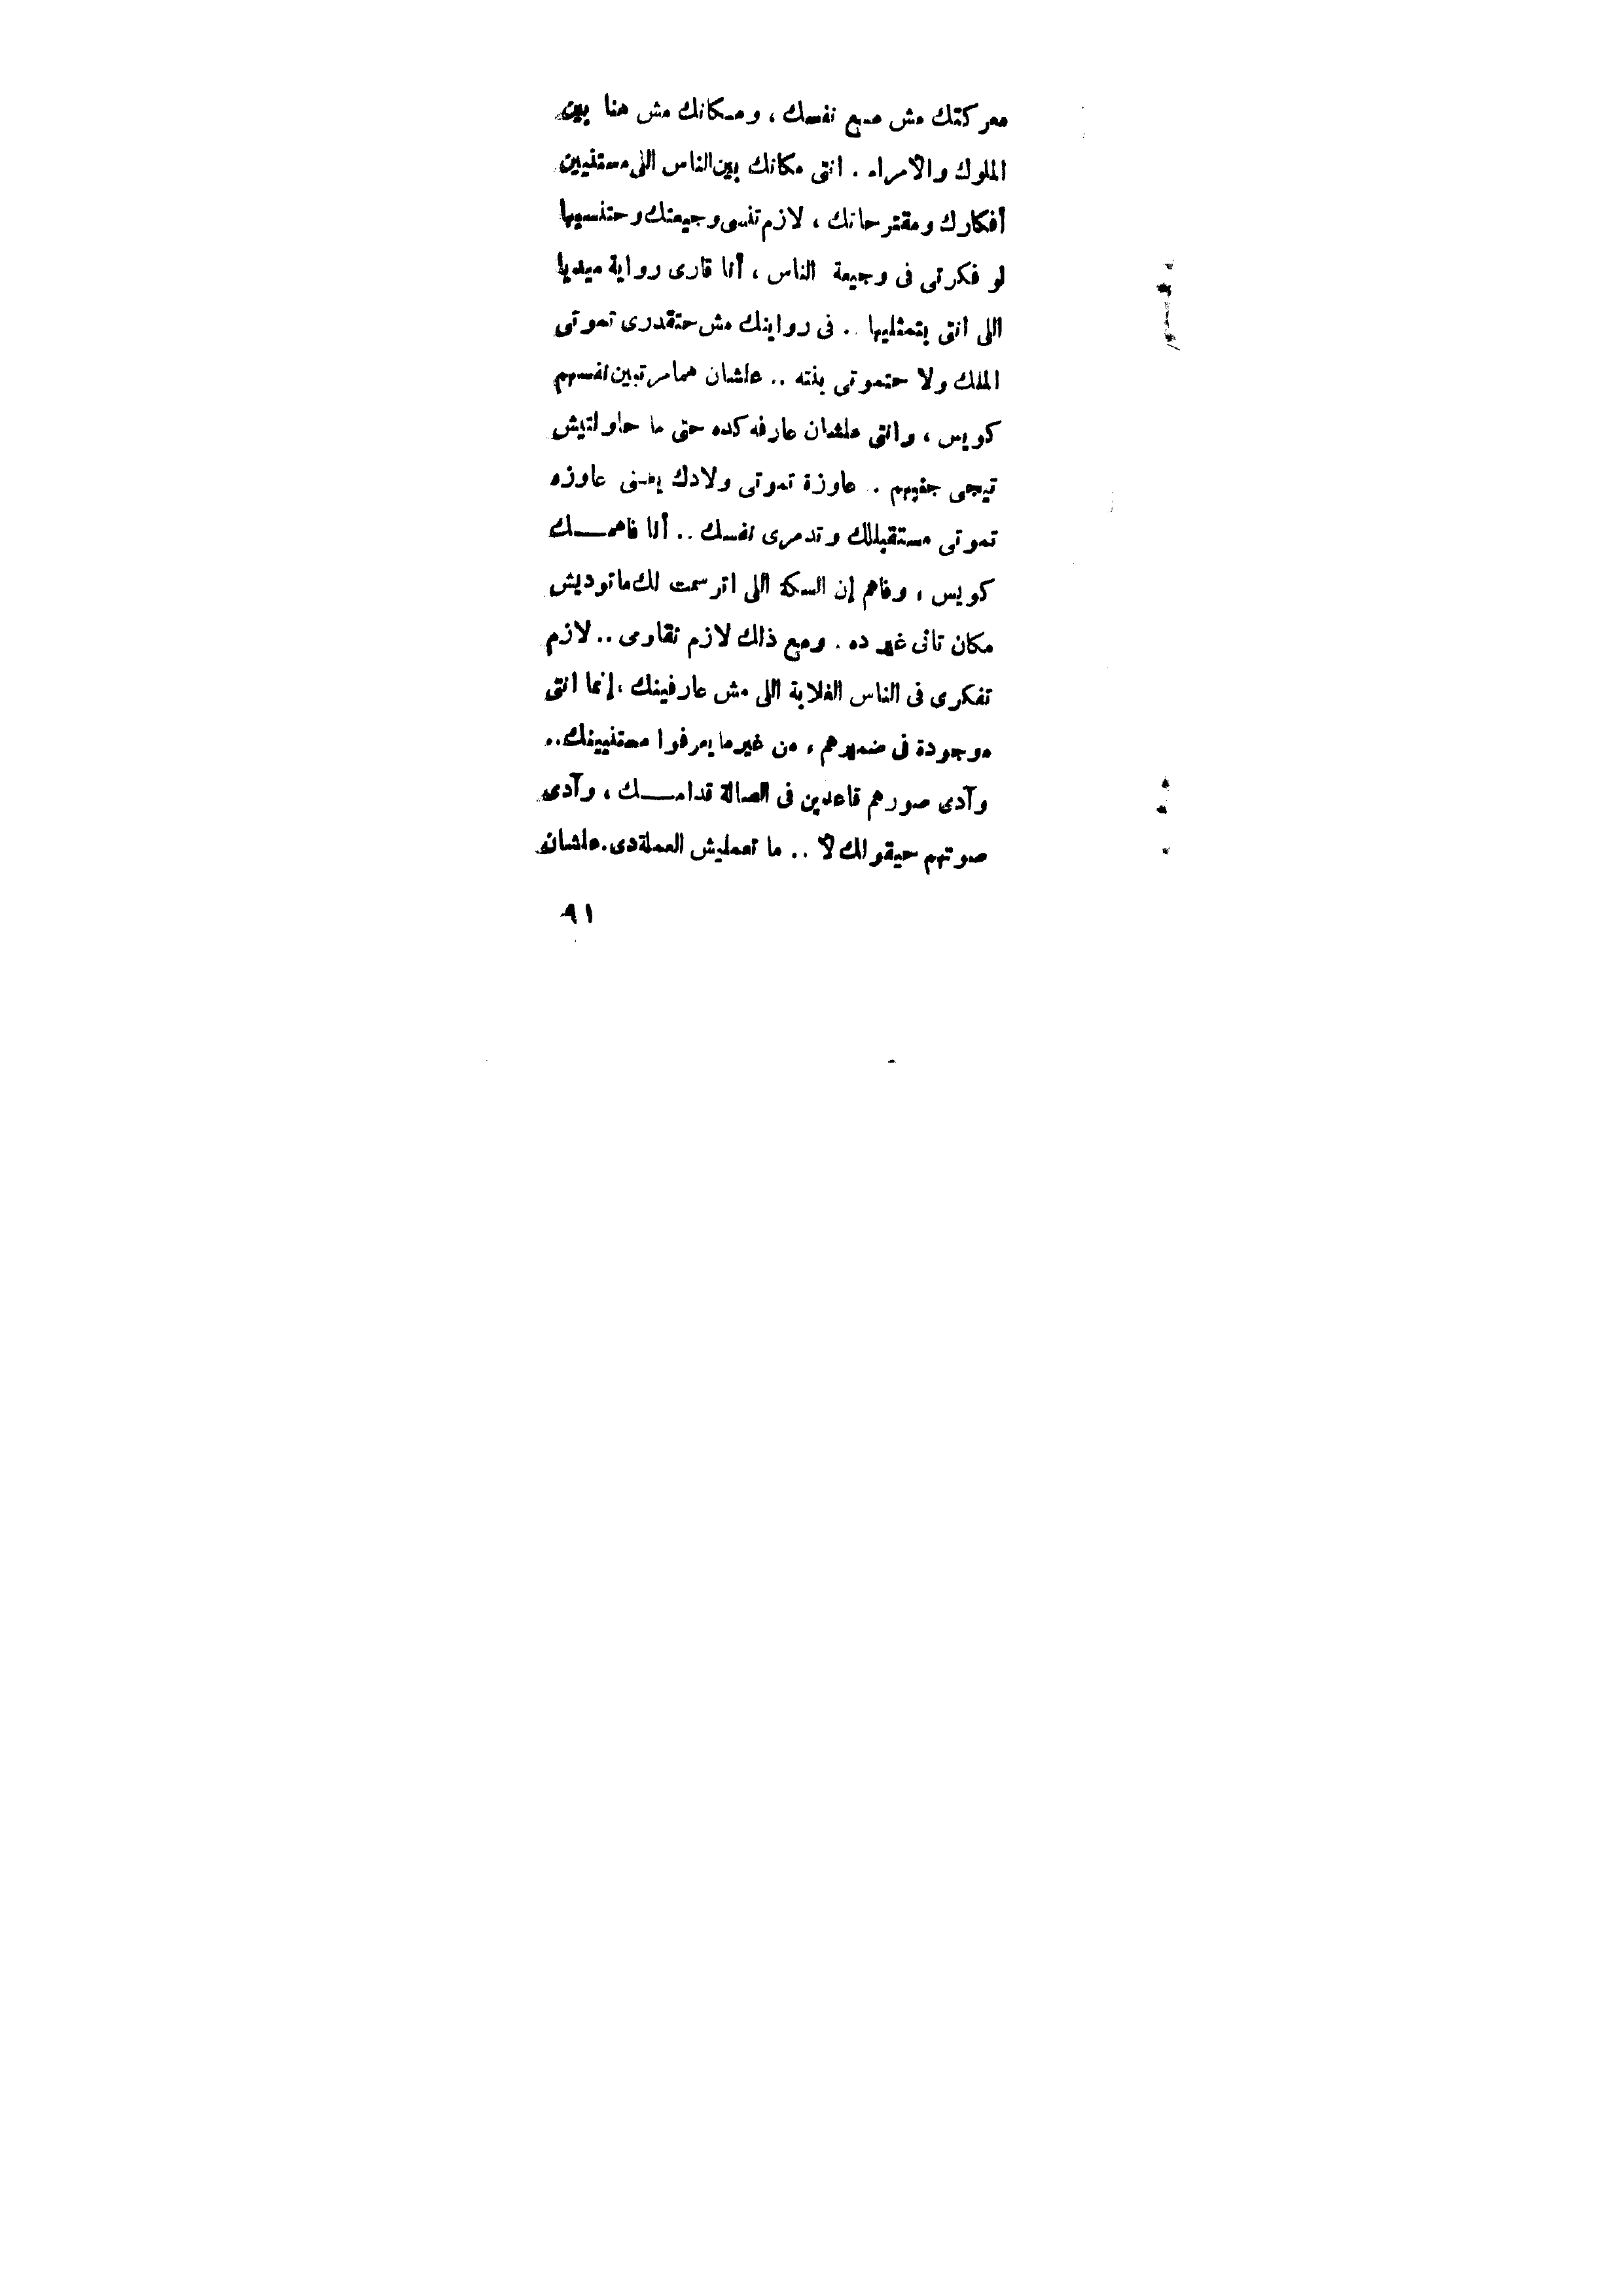 معركتك مش مع نفسك ، ومكانك مش هنا بين
الملوك والأمراء . انتى مكانك بين الناس اللى مستنيين
أفكارك ومقترحاتك ، لازم تنسى وجيعتك وحتنسيها
لو فكرتى فى وجيعة الناس ، أنا قارى رواية ميديا
اللى انتى بتمثليها .. فى روايتك مش حتقدرى تموتى
الملك ولا حتموتى بنته .. علشان هما مرتبين نفسهم
كويس ، وانتى علشان عارفه كده حتى ما حاولتيش
تيجى جنبهم . عاوزة تموتى ولادك يعنى عاوزه
تموتى مستقبلك وتدمرى نفسك .. أنا فاهمــك
كويس ، وفاهم إن السكة اللى اترسمت لك ماتوديش
مكان تانى غير ده . ومع ذلك لازم تقاومى .. لازم
تفكرى فى الناس الغلابة اللى مش عارفينك ، إنما انتى
موجودة فى ضميرهم ، من غير ما يعرفوا مستنيينك ..
وآدى صورهم قاعدين فى الصالة قدامــك ، وآدى
صوتهم حيقولك لأ .. ما تعمليش العملة دى . علشان
٩١